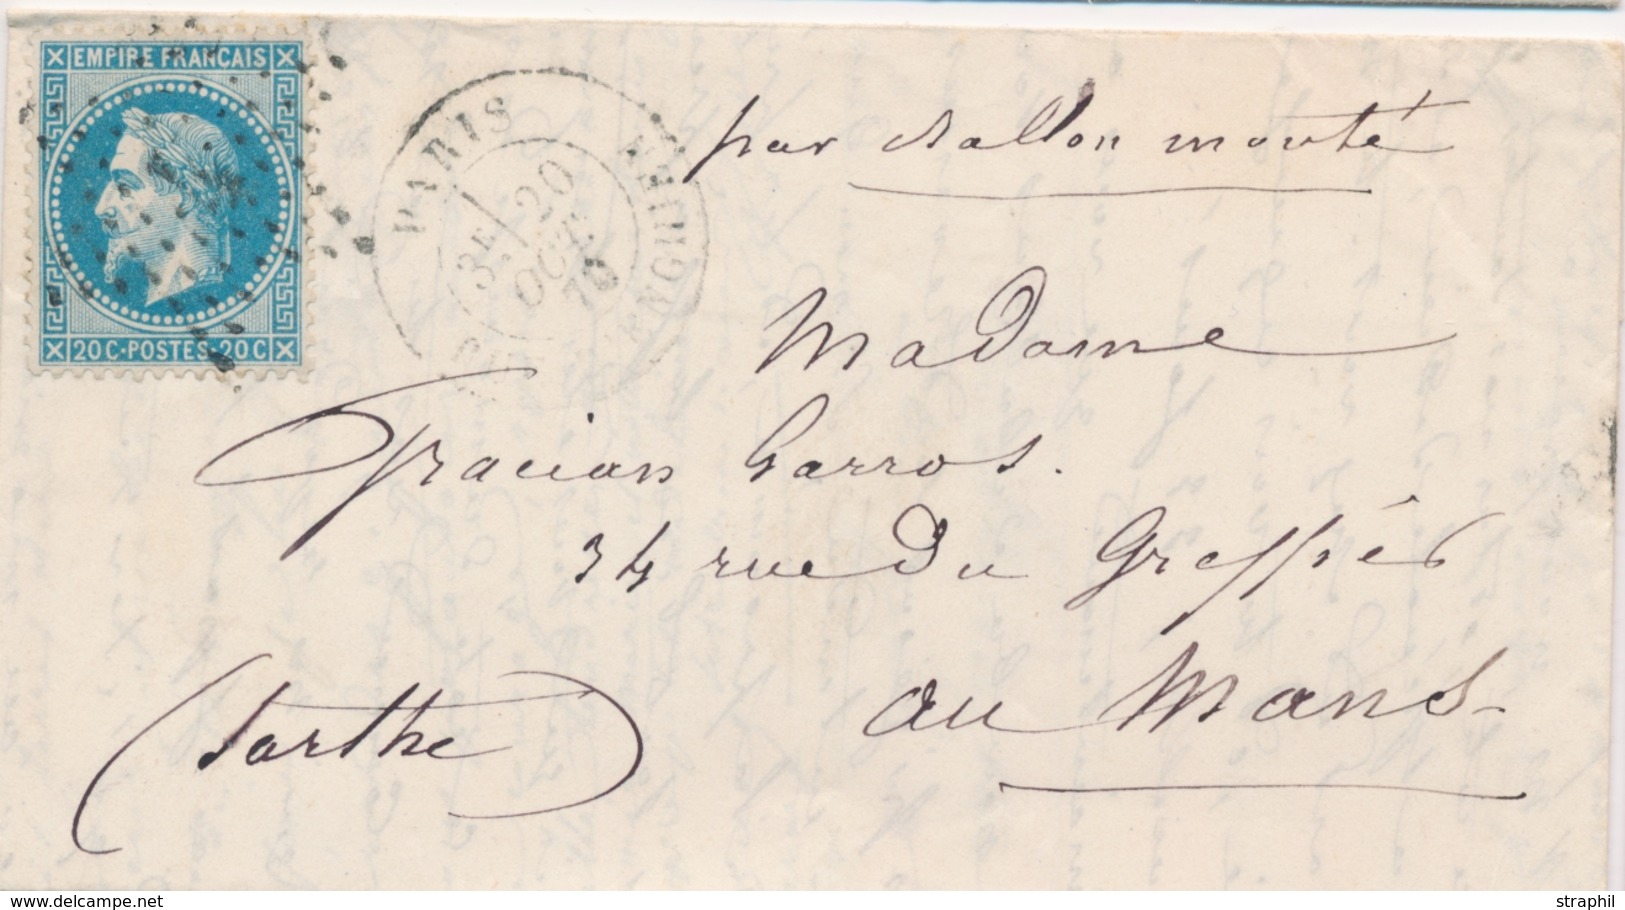 EMPIRE FRANÇAIS
20 C·POSTES·20 C
PARIS
3E 20 OCT. 70
par Ballon monté
Madame
Gracian Garros.
34 rue du Greffier
au Mans
(Sarthe)
© straphil
www.delcampe.net